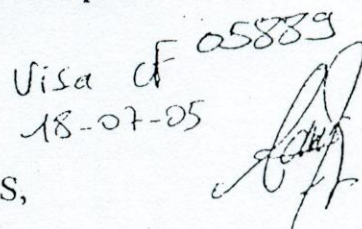 Visa CF 05889
18-07-05
S,